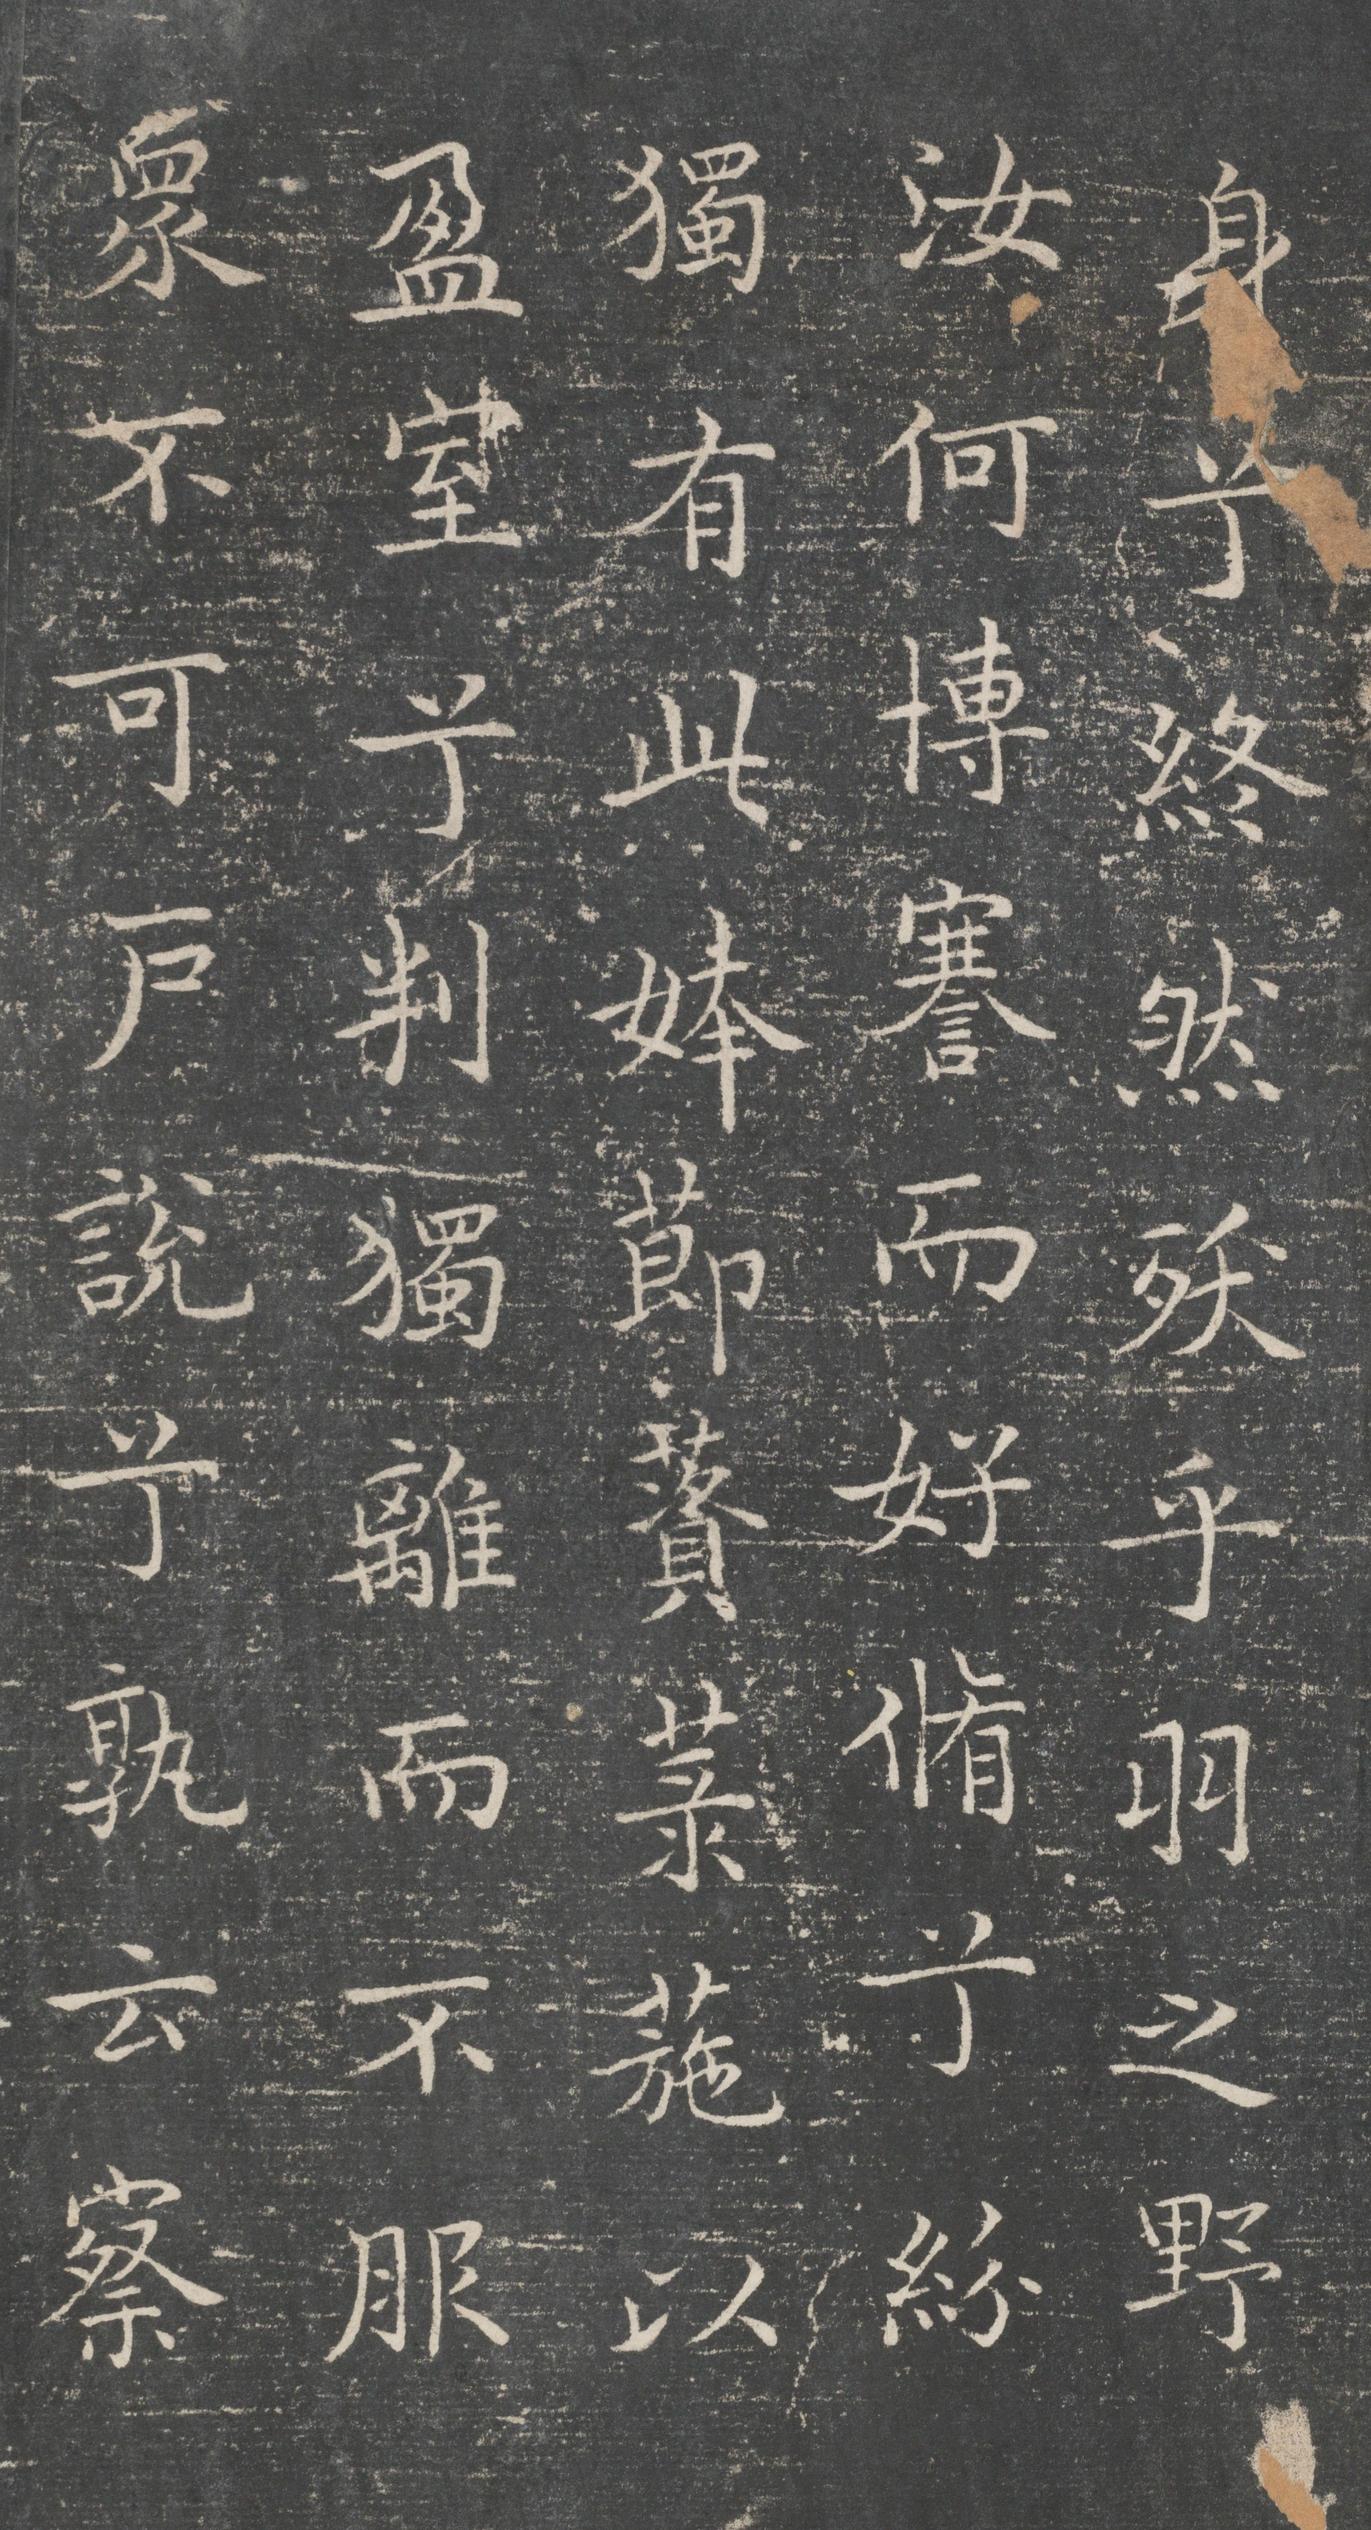 身兮終然殀乎羽之野
汝何博謇而好脩兮紛
獨有此姱莭薋菉葹以
盈室兮判獨離而不服
衆不可戸說兮孰云察